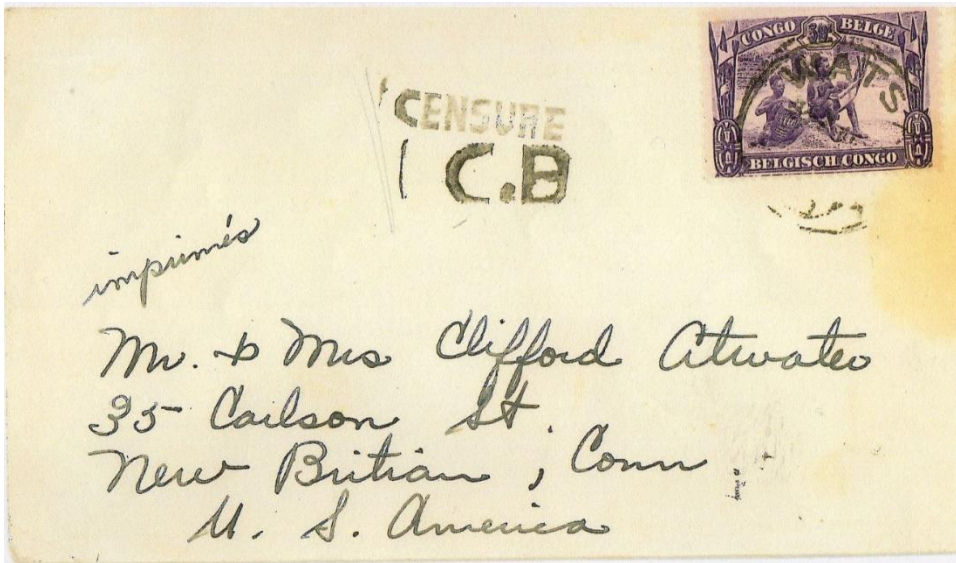 CONGO BELGE
30c
WATS
BELGISCH CONGO
CENSURE
C.B
imprimés
Mr. & Mrs Clifford Atwater
35 Carlson St.
New Britian, Conn
U. S. America